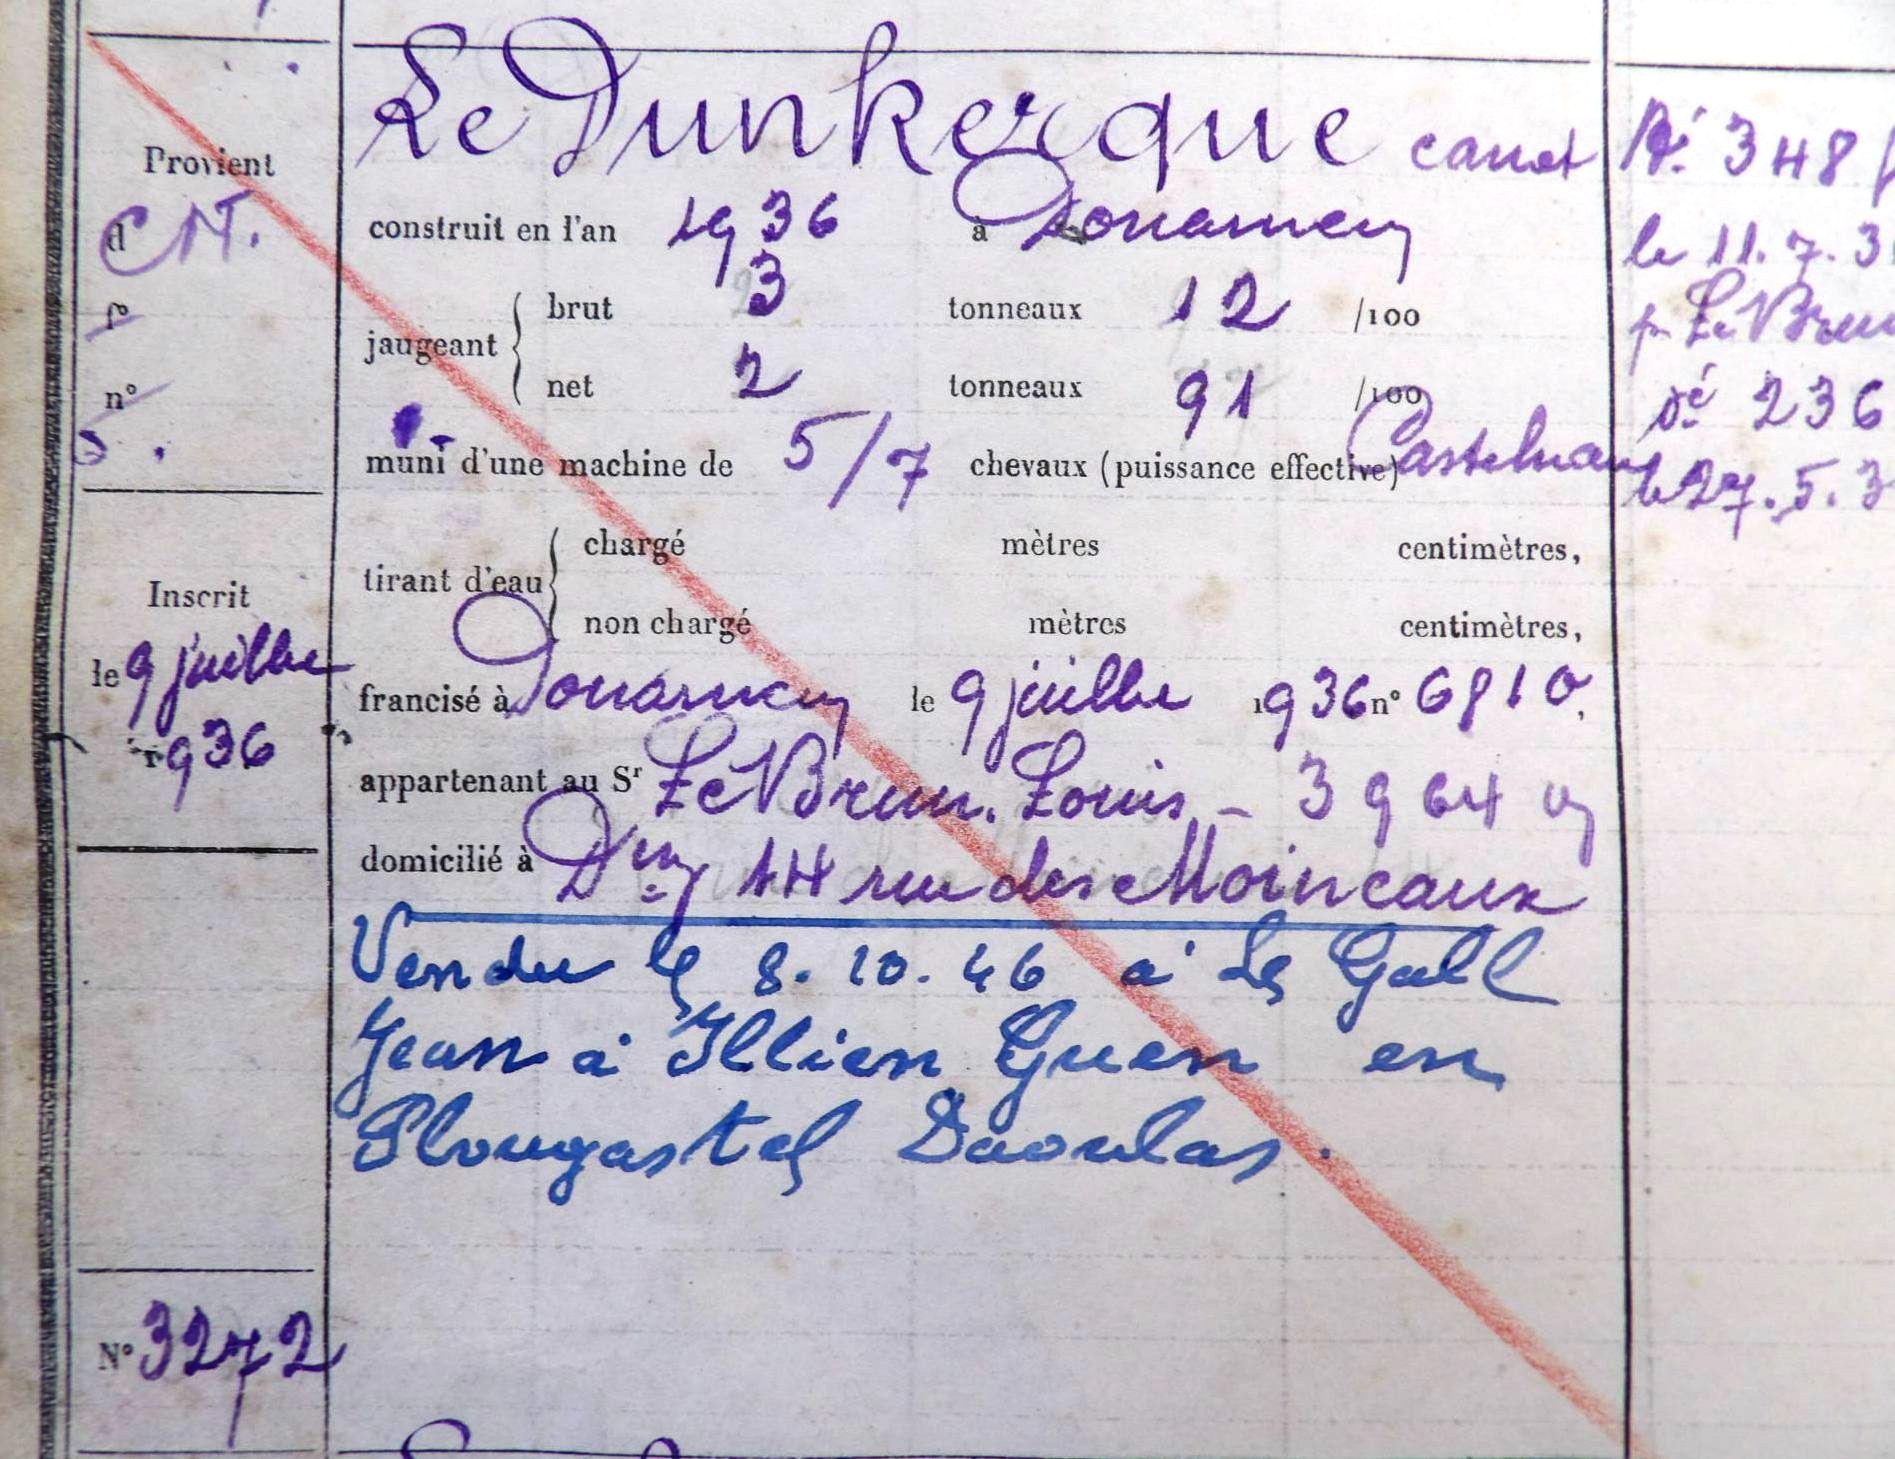 Le Dunkerque canot
Provient
d CN.
d
n°
construit en l'an 1936 à Douarnenez
jaugeant brut 3 tonneaux 12 /100
net 2 tonneaux 91 /100
muni d'une machine de 5/7 chevaux (puissance effective) Castelnau
tirant d'eau chargé mètres centimètres,
non chargé mètres centimètres,
Inscrit
le 9 juillet
1936
francisé à Douarnenez le 9 juillet 1936 n° 6810,
appartenant au Sr Le Brun Louis - 3964
domicilié à Dnez 14 rue des Moineaux
Vendu le 8.10.46 à Le Gall
Jean à Illien Guen en
Plougastel Daoulas.
N° 3272
Dé 348
le 11.7.3
pr Le Brun
Dé 236
le 27.5.3